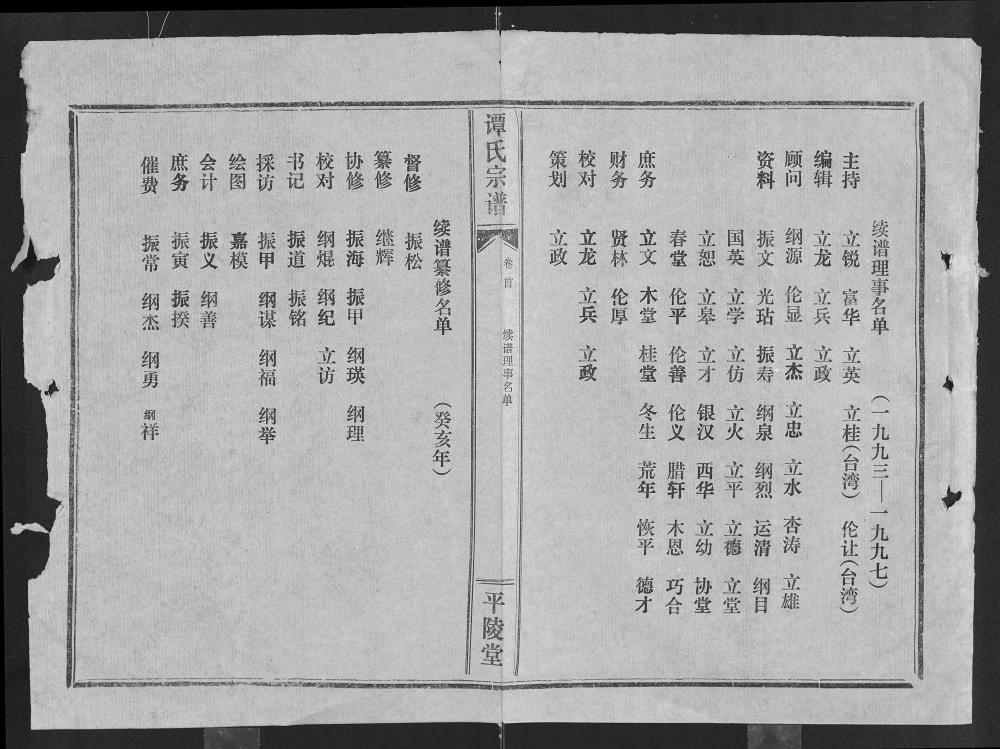 续谱理事名单 (一九九三—一九九七)
主持 立锐 富华 立英 立桂(台湾) 伦让(台湾)
编辑 立龙 立兵 立政
顾问 纲源 伦显 立杰 立忠 立水 杏涛 立雄
资料 振文 光玷 振寿 纲泉 纲烈 运清 纲目
国英 立学 立仿 立火 立平 立德 立堂
立恕 立皋 立才 银汉 西华 立幼 协堂
春堂 伦平 伦善 伦义 腊轩 木恩 巧合
庶务 立文 木堂 桂堂 冬生 荒年 恢平 德才
财务 贤林 伦厚
校对 立龙 立兵 立政
策划 立政
谭氏宗谱
卷首
续谱理事名单
平陵堂
续谱纂修名单 (癸亥年)
督修 振松
纂修 继辉
协修 振海 振甲 纲瑛 纲理
校对 纲焜 纲纪 立访
书记 振道 振铭
採访 振甲 纲谋 纲福 纲举
绘图 嘉模
会计 振义 纲善
庶务 振寅 振揆
催费 振常 纲杰 纲勇 纲祥